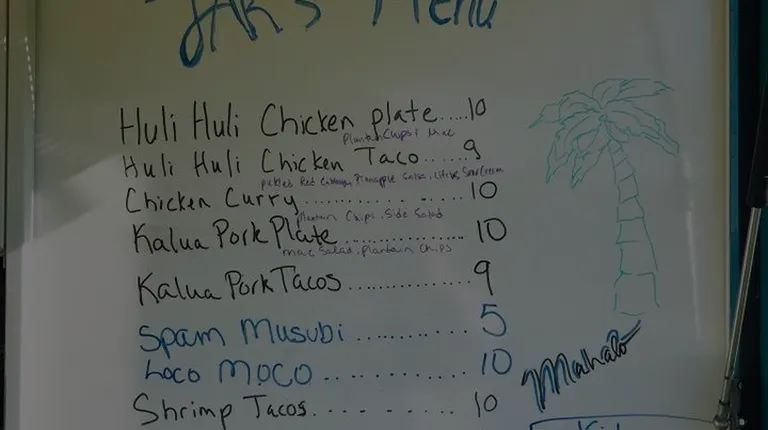 JAK's Menu
Huli Huli Chicken plate.....10
Plantain Chips & Mac
Huli Huli Chicken Taco......9
pickled Red Cabbage, Pineapple Salsa, Citrus Sour Cream
Chicken Curry.................10
plantain Chips, Side Salad
Kalua Pork Plate...............10
mac Salad, plantain Chips
Kalua Pork Tacos............9
Spam Musubi...........5
Loco MOCO...........10
Mahalo
Shrimp Tacos.........10